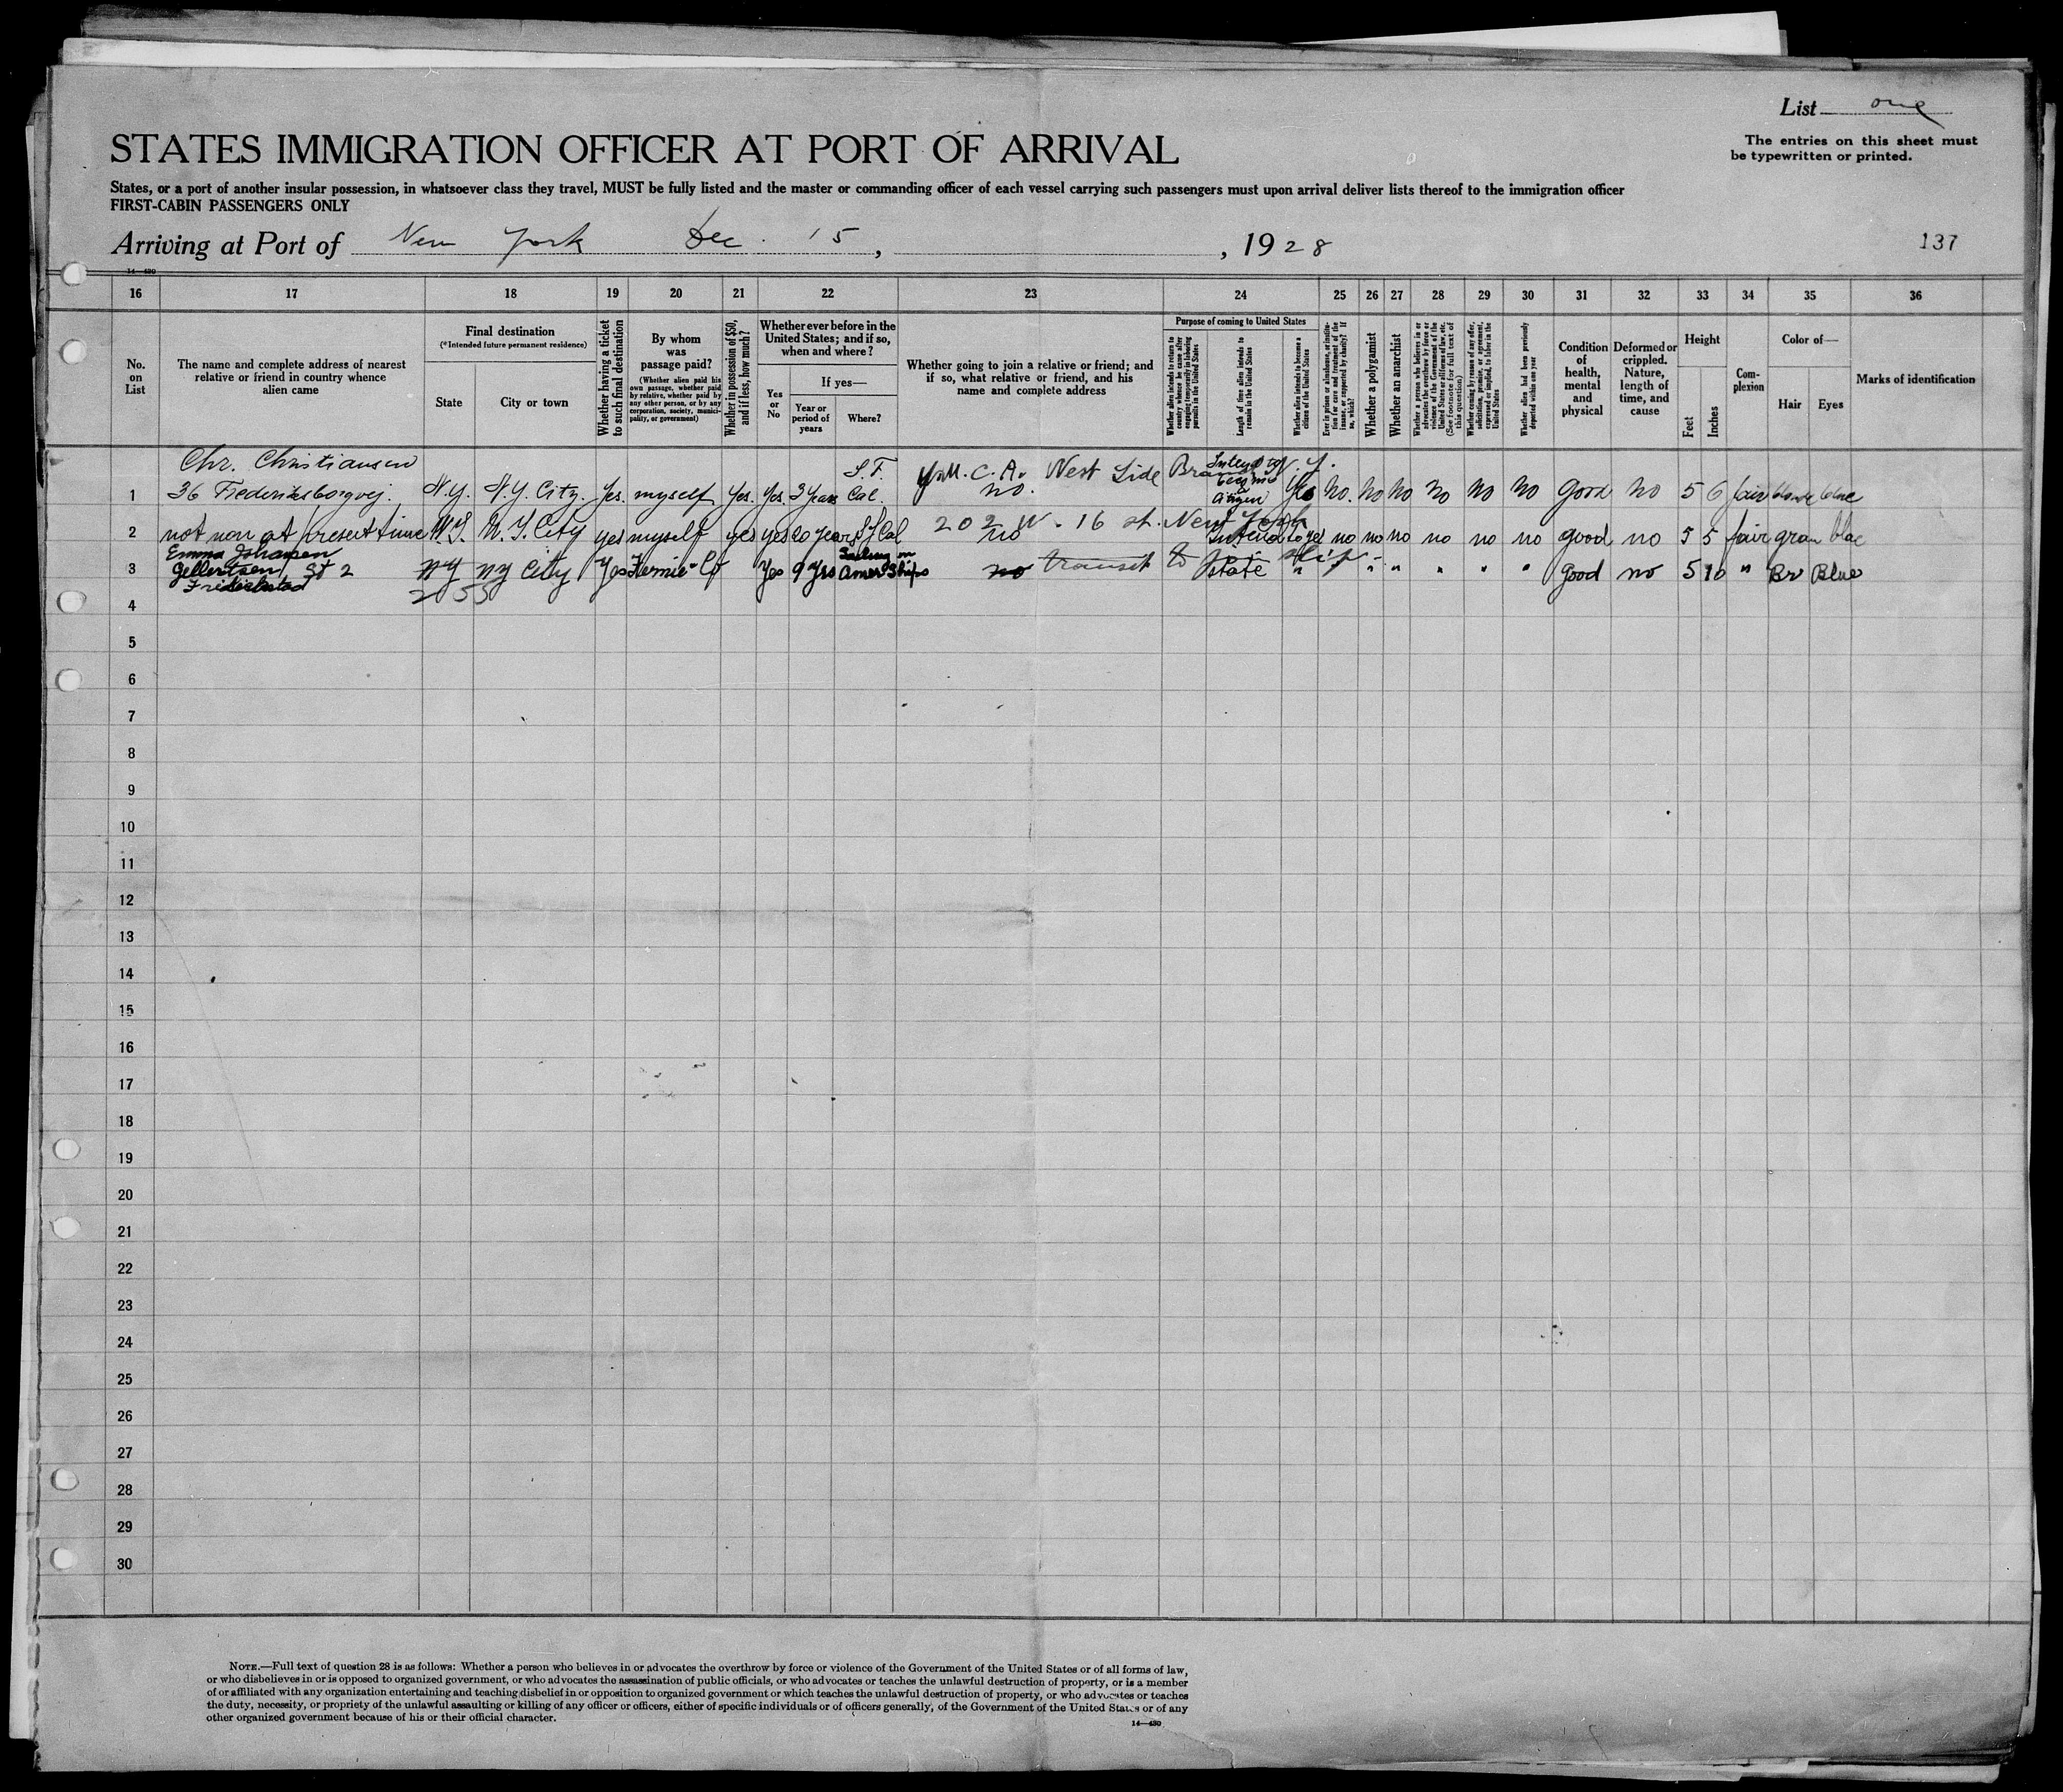 List one
The entries on this sheet must
be typewritten or printed.
STATES IMMIGRATION OFFICER AT PORT OF ARRIVAL
States, or a port of another insular possession, in whatsoever class they travel, MUST be fully listed and the master or commanding officer of each vessel carrying such passengers must upon arrival deliver lists thereof to the immigration officer
FIRST-CABIN PASSENGERS ONLY
Arriving at Port of New York Dec. 15, , 1928
137
14—430
16 17 18 19 20 21 22 23 24 25 26 27 28 29 30 31 32 33 34 35 36
No. on List
The name and complete address of nearest relative or friend in country whence alien came
Final destination
(*Intended future permanent residence)
State
City or town
Whether having a ticket to such final destination
By whom was passage paid?
(Whether alien paid his own passage, whether paid by relative, whether paid by any other person, or by any corporation, society, municipality, or government)
Whether in possession of $50, and if less, how much?
Whether ever before in the United States; and if so, when and where?
Yes or No
If yes—
Year or period of years
Where?
Whether going to join a relative or friend; and if so, what relative or friend, and his name and complete address
Purpose of coming to United States
Whether alien intends to return to country whence he came after engaging temporarily in laboring pursuits in the United States
Length of time alien intends to remain in the United States
Whether alien intends to become a citizen of the United States
Ever in prison or almshouse, or institution for care and treatment of the insane, or supported by charity? If so, which?
Whether a polygamist
Whether an anarchist
Whether a person who believes in or advocates the overthrow by force or violence of the Government of the United States or all forms of law, etc. (See footnote for full text of this question)
Whether coming by reason of any offer, solicitation, promise, or agreement, expressed or implied, to labor in the United States
Whether alien had been previously deported within one year
Condition of health, mental and physical
Deformed or crippled. Nature, length of time, and cause
Height
Feet
Inches
Complexion
Color of—
Hair
Eyes
Marks of identification
Chr. Christiansen S.F. Y.M.C.A. West Side Branch N.Y.
1 36 Frederiksborgvej. N.Y. N.Y. City. Yes. myself Yes. Yes. 3 Years Cal. no. Intend to become a citizen Yes No. No No No No No Good No 5 6 fair blue
202 W. 16 st. New York
2 not non at present time N.Y. N.Y. City yes myself yes yes 20 years S F Cal no Intend to yes no no no no no no good no 5 5 fair gray blue
Emma Johansen
3 Gellertsen St 2 NY NY City Yes Co Yes 9 Yrs Amer Ships no transit to state " " " " " " good no 5 10 " Br Blue
Fredrikstad
4
5
6
7
8
9
10
11
12
13
14
15
16
17
18
19
20
21
22
23
24
25
26
27
28
29
30
NOTE.—Full text of question 28 is as follows: Whether a person who believes in or advocates the overthrow by force or violence of the Government of the United States or of all forms of law,
or who disbelieves in or is opposed to organized government, or who advocates the assassination of public officials, or who advocates or teaches the unlawful destruction of property, or is a member
of or affiliated with any organization entertaining and teaching disbelief in or opposition to organized government or which teaches the unlawful destruction of property, or who advocates or teaches
the duty, necessity, or propriety of the unlawful assaulting or killing of any officer or officers, either of specific individuals or of officers generally, of the Government of the United States or of any
other organized government because of his or their official character.
14—430